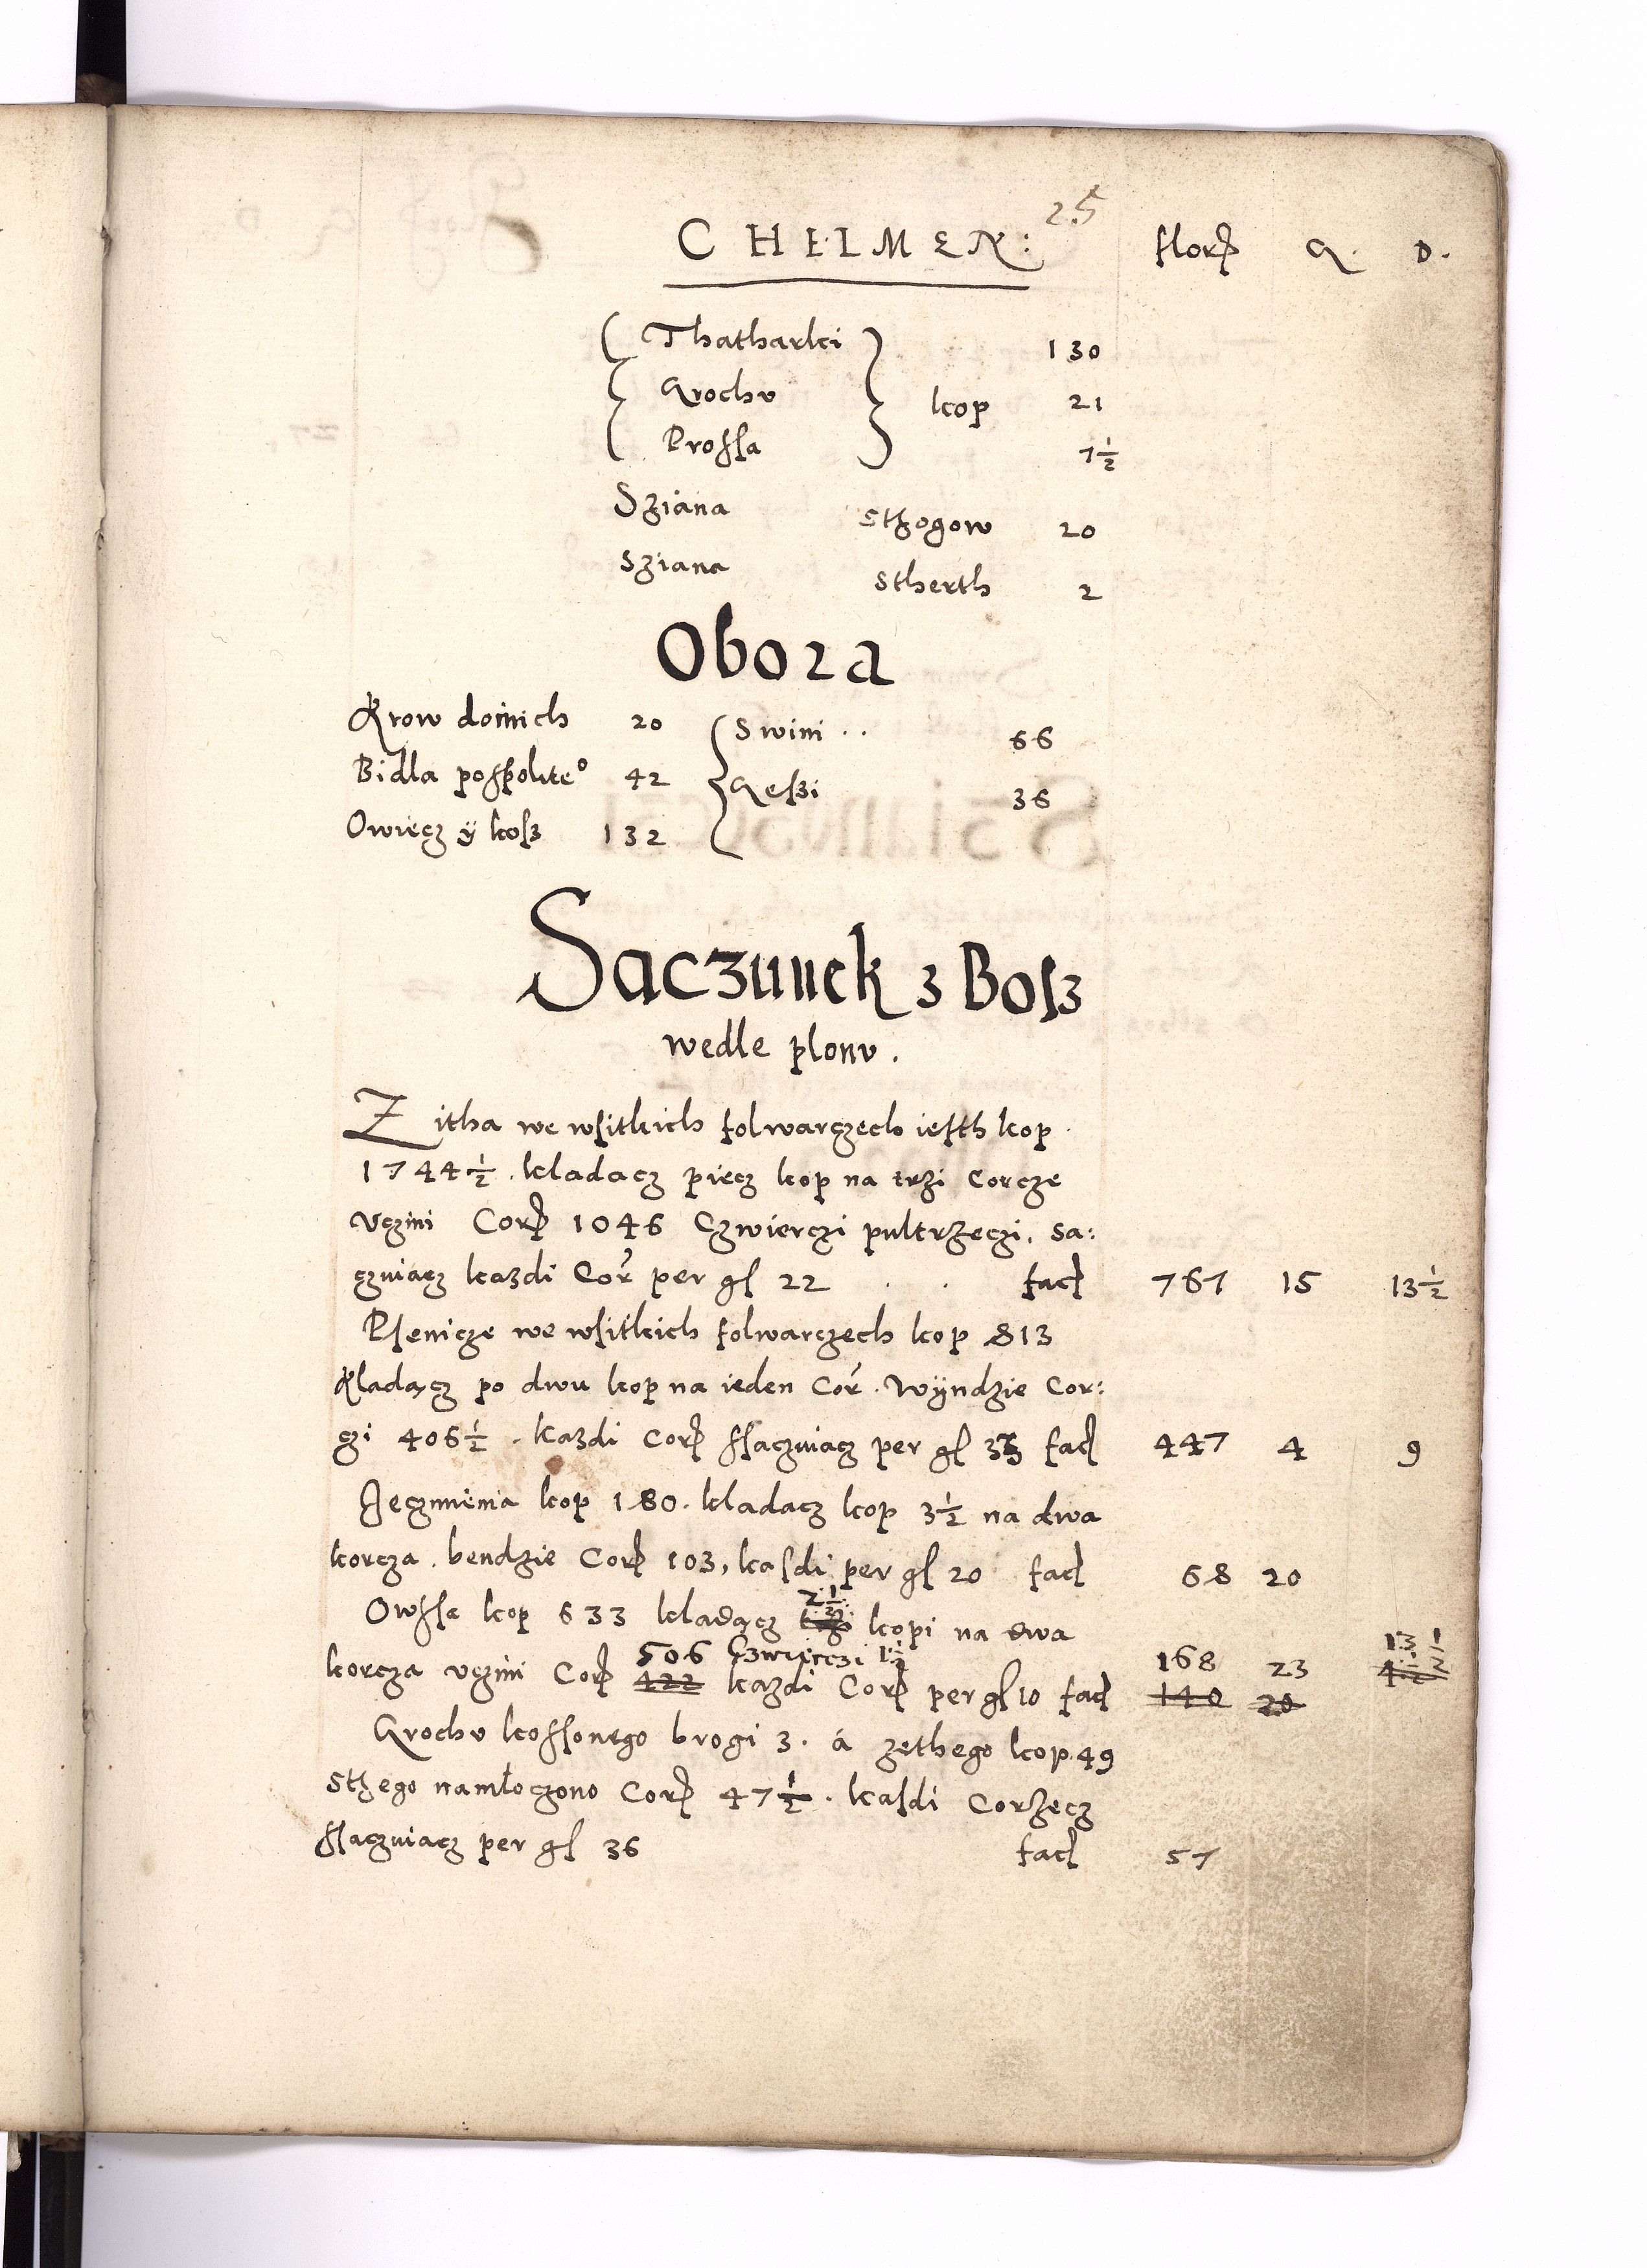 25
CHELMEN: flor G. D.
Thatharki 130
Grochu kop 21
Prossa 7½
Sziana Sthogow 20
Sziana Stherth 2
Obora
Krow doinich 20 Swini .. 66
Bidla pospolite° 42 Gęszi 36
Owiecz ÿ kosz 132
Saczunek z Bosz
wedle plonu.
Zitha we wsitkich folwarczech iesth kop
1744½. kladacz piecz kop na trzi Corcze
vczini Cor 1046 Czwierczi pultrzeczi, sa:
czuiacz kazdi Cor per gl 22 . . fac 767 15 13½
Psenicze we wsitkich folwarczech kop 813
Kladącz po dwu kop na ieden Cor. Wÿndzie Cor:
czi 406½. kazdi Cor ssaczuiacz per gl 33 fac 447 4 9
Jęczmienia kop 180. kladacz kop 3½ na dwa
korcza. bendzie Cor 103, kasdi per gl 20 fac 68 20
2½
Owssa kop 633 kladącz kopi na dwa
506 Czwierczi 1½ 168 23 13½
korcza vczini Cor 422 kazdi Cor per gl 10 fac 140 20
Grochu kossonego brogi 3. á zethego kop. 49
Sthego namłoczono Cor 47½. kasdi Corzecz
ssaczuiacz per gl 36 fac 57